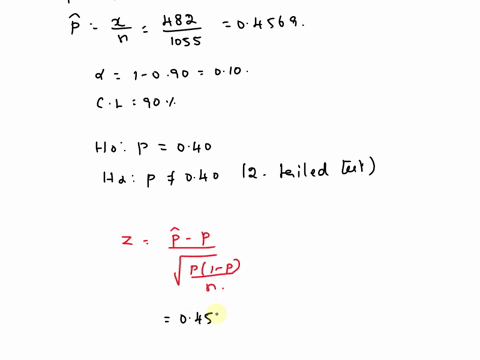 p̂ = x/n = 482/1055 = 0.4569.
α = 1-0.90 = 0.10.
C.L = 90%
H0: p = 0.40
Ha: p ≠ 0.40 (2. tailed test)
z = p̂ - p / √(p(1-p)/n).
= 0.45